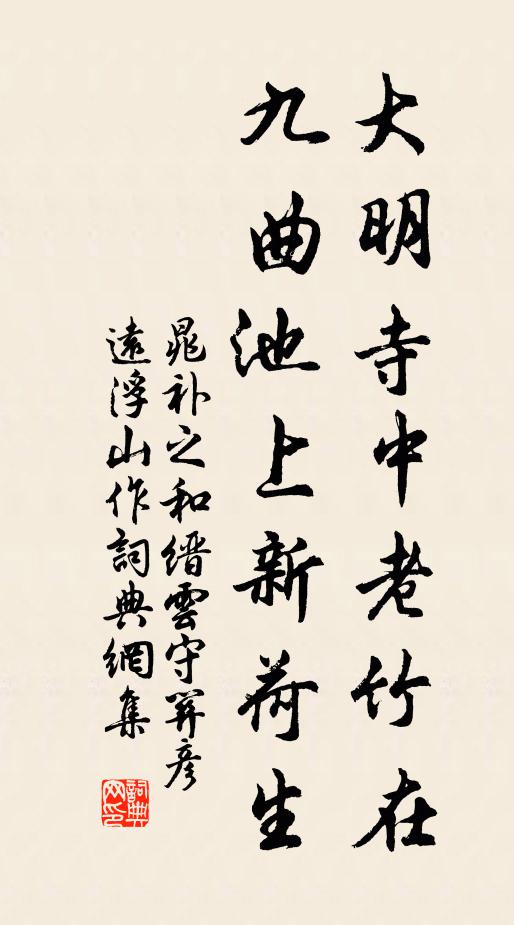 大明寺中老竹在
九曲池上新荷生
晁补之和缙雲守關彦
遠浮山作詞典網集
詞典网印